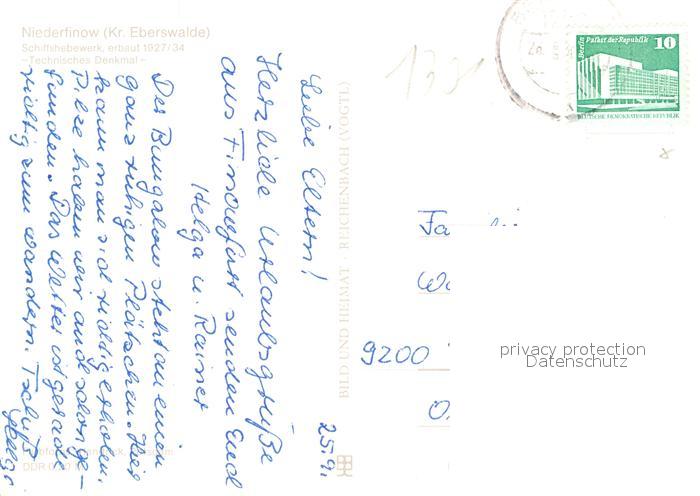 Niederfinow (Kr. Eberswalde)
Schiffshebewerk, erbaut 1927/34
– Technisches Denkmal –
25.9.
Liebe Eltern!
Herzliche Urlaubsgrüße
aus Finowfurt senden Euch
Helga u. Rainer
Der Bungalow steht an einem
ganz ruhigen Plätzchen. Hier
kann man sich richtig erholen.
Pilze haben wir auch schon ge-
funden. Das Wetter ist gerade
richtig zum wandern. Tschüß
Helga
BILD UND HEIMAT · REICHENBACH (VOGTL)
Berlin Palast der Republik 10
DEUTSCHE DEMOKRATISCHE REPUBLIK
Fa
9200
privacy protection
Datenschutz